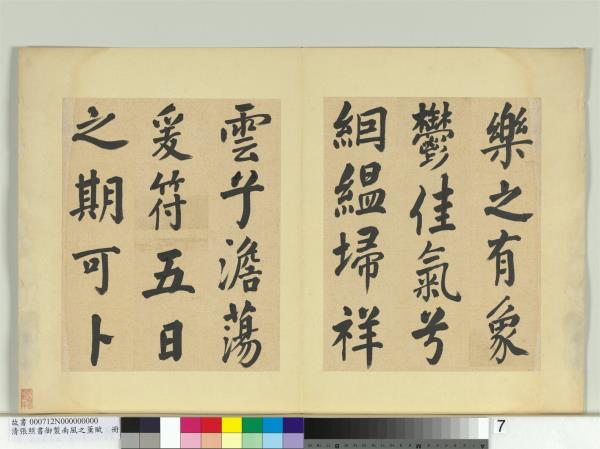 樂之有象
鬱佳氣兮
絪縕埽祥
雲兮澹蕩
爰符五日
之期可卜
故書 000712N000000000
清張照書御製南風之薰賦 冊
7